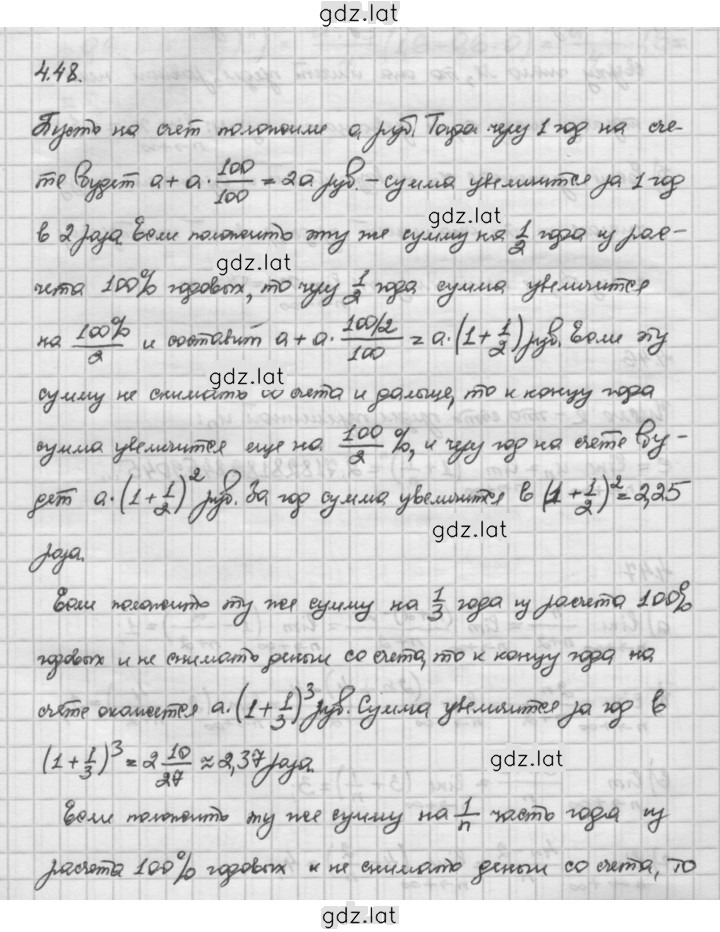 gdz.lat
4.48.
Пусть на счет положили a руб. Тогда через 1 год на сче-
те будет a + a · 100/100 = 2a руб. – сумма увеличится за 1 год
gdz.lat
в 2 раза. Если положить эту же сумму на 1/2 года из рас-
gdz.lat
чета 100% годовых, то через 1/2 года сумма увеличится
на 100%/2 и составит a + a · (100/2)/100 = a · (1 + 1/2) руб. Если эту
gdz.lat
сумму не снимать со счета и дальше, то к концу года
сумма увеличится еще на 100/2 %, и через год на счете бу-
gdz.lat
дет a · (1 + 1/2)^2 руб. За год сумма увеличится в (1 + 1/2)^2 = 2,25
gdz.lat
раза.
Если положить ту же сумму на 1/3 года из расчета 100%
годовых и не снимать деньги со счета, то к концу года на
gdz.lat
счете окажется a · (1 + 1/3)^3 руб. Сумма увеличится за год в
(1 + 1/3)^3 = 2 10/27 ≈ 2,37 раза.
gdz.lat
Если положить ту же сумму на 1/n часть года из
расчета 100% годовых и не снимать деньги со счета, то
gdz.lat